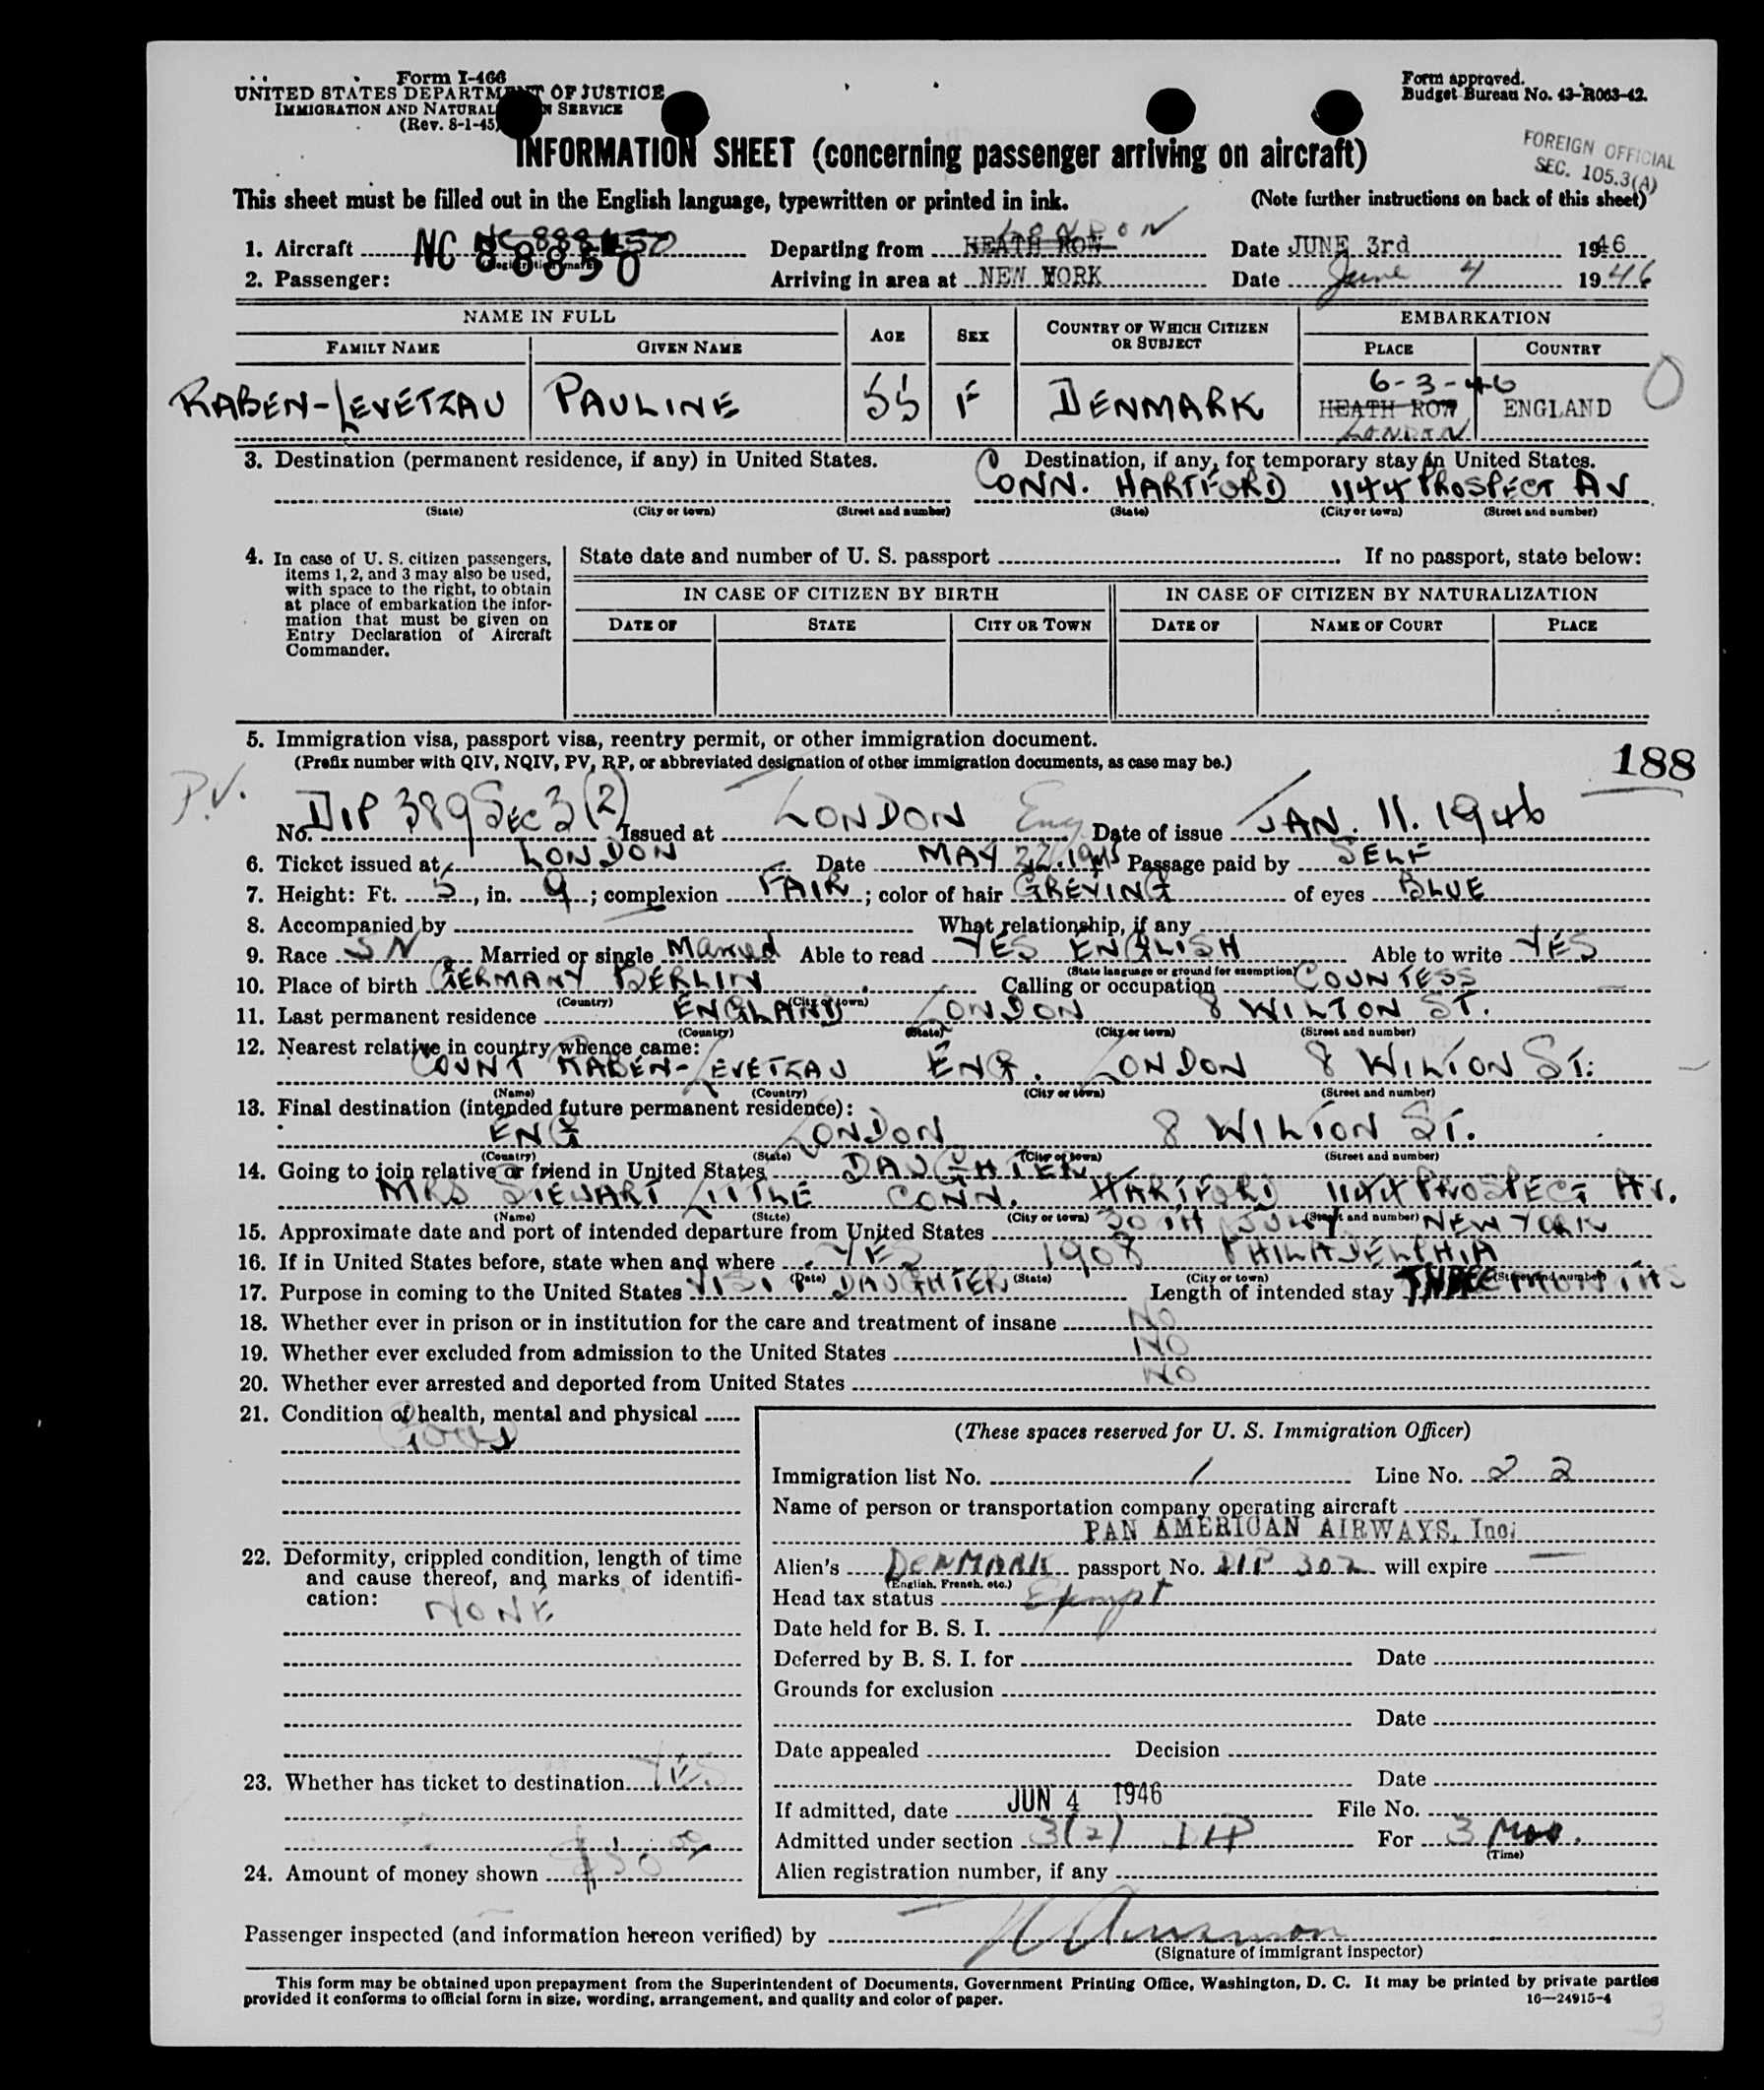 Form I-466
UNITED STATES DEPARTMENT OF JUSTICE
IMMIGRATION AND NATURAL N SERVICE
(Rev. 8-1-45)
Form approved.
Budget Bureau No. 43-R063-42.
INFORMATION SHEET (concerning passenger arriving on aircraft)
FOREIGN OFFICIAL
SEC. 105.3(A)
This sheet must be filled out in the English language, typewritten or printed in ink. (Note further instructions on back of this sheet)
LONDON
1. Aircraft NC 88850 Departing from HEATH ROW Date JUNE 3rd 1946
2. Passenger: Arriving in area at NEW YORK Date June 4 1946
NAME IN FULL AGE SEX COUNTRY OF WHICH CITIZEN OR SUBJECT EMBARKATION
FAMILY NAME GIVEN NAME PLACE COUNTRY
6-3-46
RABEN-LEVETZAU PAULINE 55 F DENMARK HEATH ROW ENGLAND O
LONDON
3. Destination (permanent residence, if any) in United States. Destination, if any, for temporary stay in United States.
CONN. HARTFORD 1144 PROSPECT AV
(State) (City or town) (Street and number) (State) (City or town) (Street and number)
4. In case of U. S. citizen passengers, items 1, 2, and 3 may also be used, with space to the right, to obtain at place of embarkation the information that must be given on Entry Declaration of Aircraft Commander.
State date and number of U. S. passport If no passport, state below:
IN CASE OF CITIZEN BY BIRTH IN CASE OF CITIZEN BY NATURALIZATION
DATE OF STATE CITY OR TOWN DATE OF NAME OF COURT PLACE
5. Immigration visa, passport visa, reentry permit, or other immigration document.
(Prefix number with QIV, NQIV, PV, RP, or abbreviated designation of other immigration documents, as case may be.)
188
P.V.
No. DIP 389 SEC 3(2) Issued at LONDON Eng Date of issue JAN. 11. 1946
6. Ticket issued at LONDON Date MAY 22. Passage paid by SELF
7. Height: Ft. 5, in. 9; complexion FAIR; color of hair GREYING of eyes BLUE
8. Accompanied by What relationship, if any
9. Race SN Married or single Married Able to read YES ENGLISH Able to write YES
(State language or ground for exemption)
10. Place of birth GERMANY BERLIN Calling or occupation COUNTESS
(Country) (City or town)
11. Last permanent residence ENGLAND LONDON 8 WILTON ST.
(Country) (State) (City or town) (Street and number)
12. Nearest relative in country whence came:
COUNT RABEN-LEVETZAU ENG. LONDON 8 WILTON ST.
(Name) (Country) (City or town) (Street and number)
13. Final destination (intended future permanent residence):
ENG LONDON 8 WILTON ST.
(Country) (State) (City or town) (Street and number)
14. Going to join relative or friend in United States DAUGHTER
MRS STEWART LITTLE CONN. HARTFORD 1144 PROSPECT AV.
(Name) (State) (City or town) (Street and number)
15. Approximate date and port of intended departure from United States 30TH JULY NEW YORK
16. If in United States before, state when and where YES 1908 PHILADELPHIA
(Date) (State) (City or town) (Street and number)
17. Purpose in coming to the United States VISIT DAUGHTER Length of intended stay THREE MONTHS
18. Whether ever in prison or in institution for the care and treatment of insane NO
19. Whether ever excluded from admission to the United States NO
20. Whether ever arrested and deported from United States NO
21. Condition of health, mental and physical
GOOD
22. Deformity, crippled condition, length of time and cause thereof, and marks of identification:
NONE
23. Whether has ticket to destination YES
24. Amount of money shown
(These spaces reserved for U. S. Immigration Officer)
Immigration list No. 1 Line No. 22
Name of person or transportation company operating aircraft
PAN AMERICAN AIRWAYS, Inc.
Alien's DENMARK passport No. DIP 302 will expire —
(English, French, etc.)
Head tax status Exempt
Date held for B. S. I.
Deferred by B. S. I. for Date
Grounds for exclusion
Date
Date appealed Decision
Date
If admitted, date JUN 4 1946 File No.
Admitted under section 3(2) DIP For 3 Mos.
(Time)
Alien registration number, if any
Passenger inspected (and information hereon verified) by
(Signature of immigrant inspector)
This form may be obtained upon prepayment from the Superintendent of Documents, Government Printing Office, Washington, D. C. It may be printed by private parties
provided it conforms to official form in size, wording, arrangement, and quality and color of paper.
16—24915-4
3